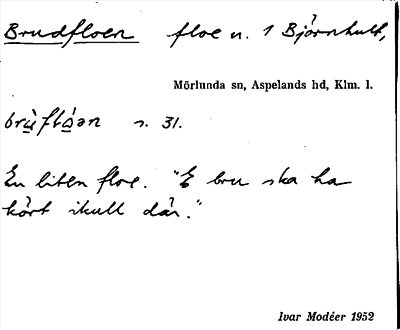 Brudfloen floe n. 1 Björnhult,
Mörlunda sn, Aspelands hd, Klm. l.
brùflóən s. 31.
En liten floe. "E bru ska ha
kört ikull där."
Ivar Modéer 1952